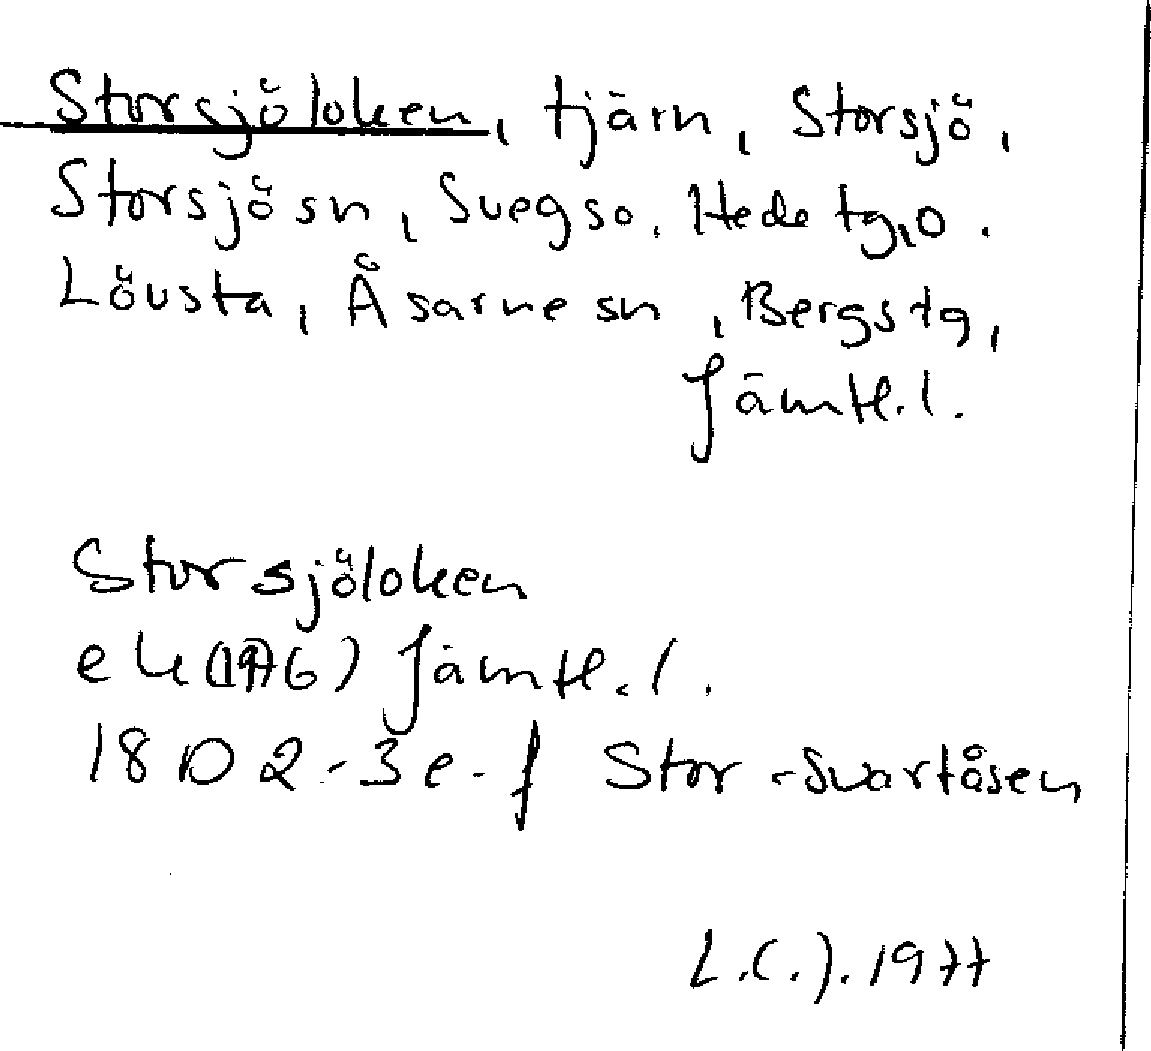 Storsjöloken, tjärn, Storsjö,
Storsjö sn, Svegs o. Hede tg, o.
Lövsta, Åsarne sn, Bergs tg,
Jämtl. l.
Storsjöloken
ek (1976) Jämtl. l.
18 D 2-3 e-f Stor-Svartåsen
L.C.J. 1977